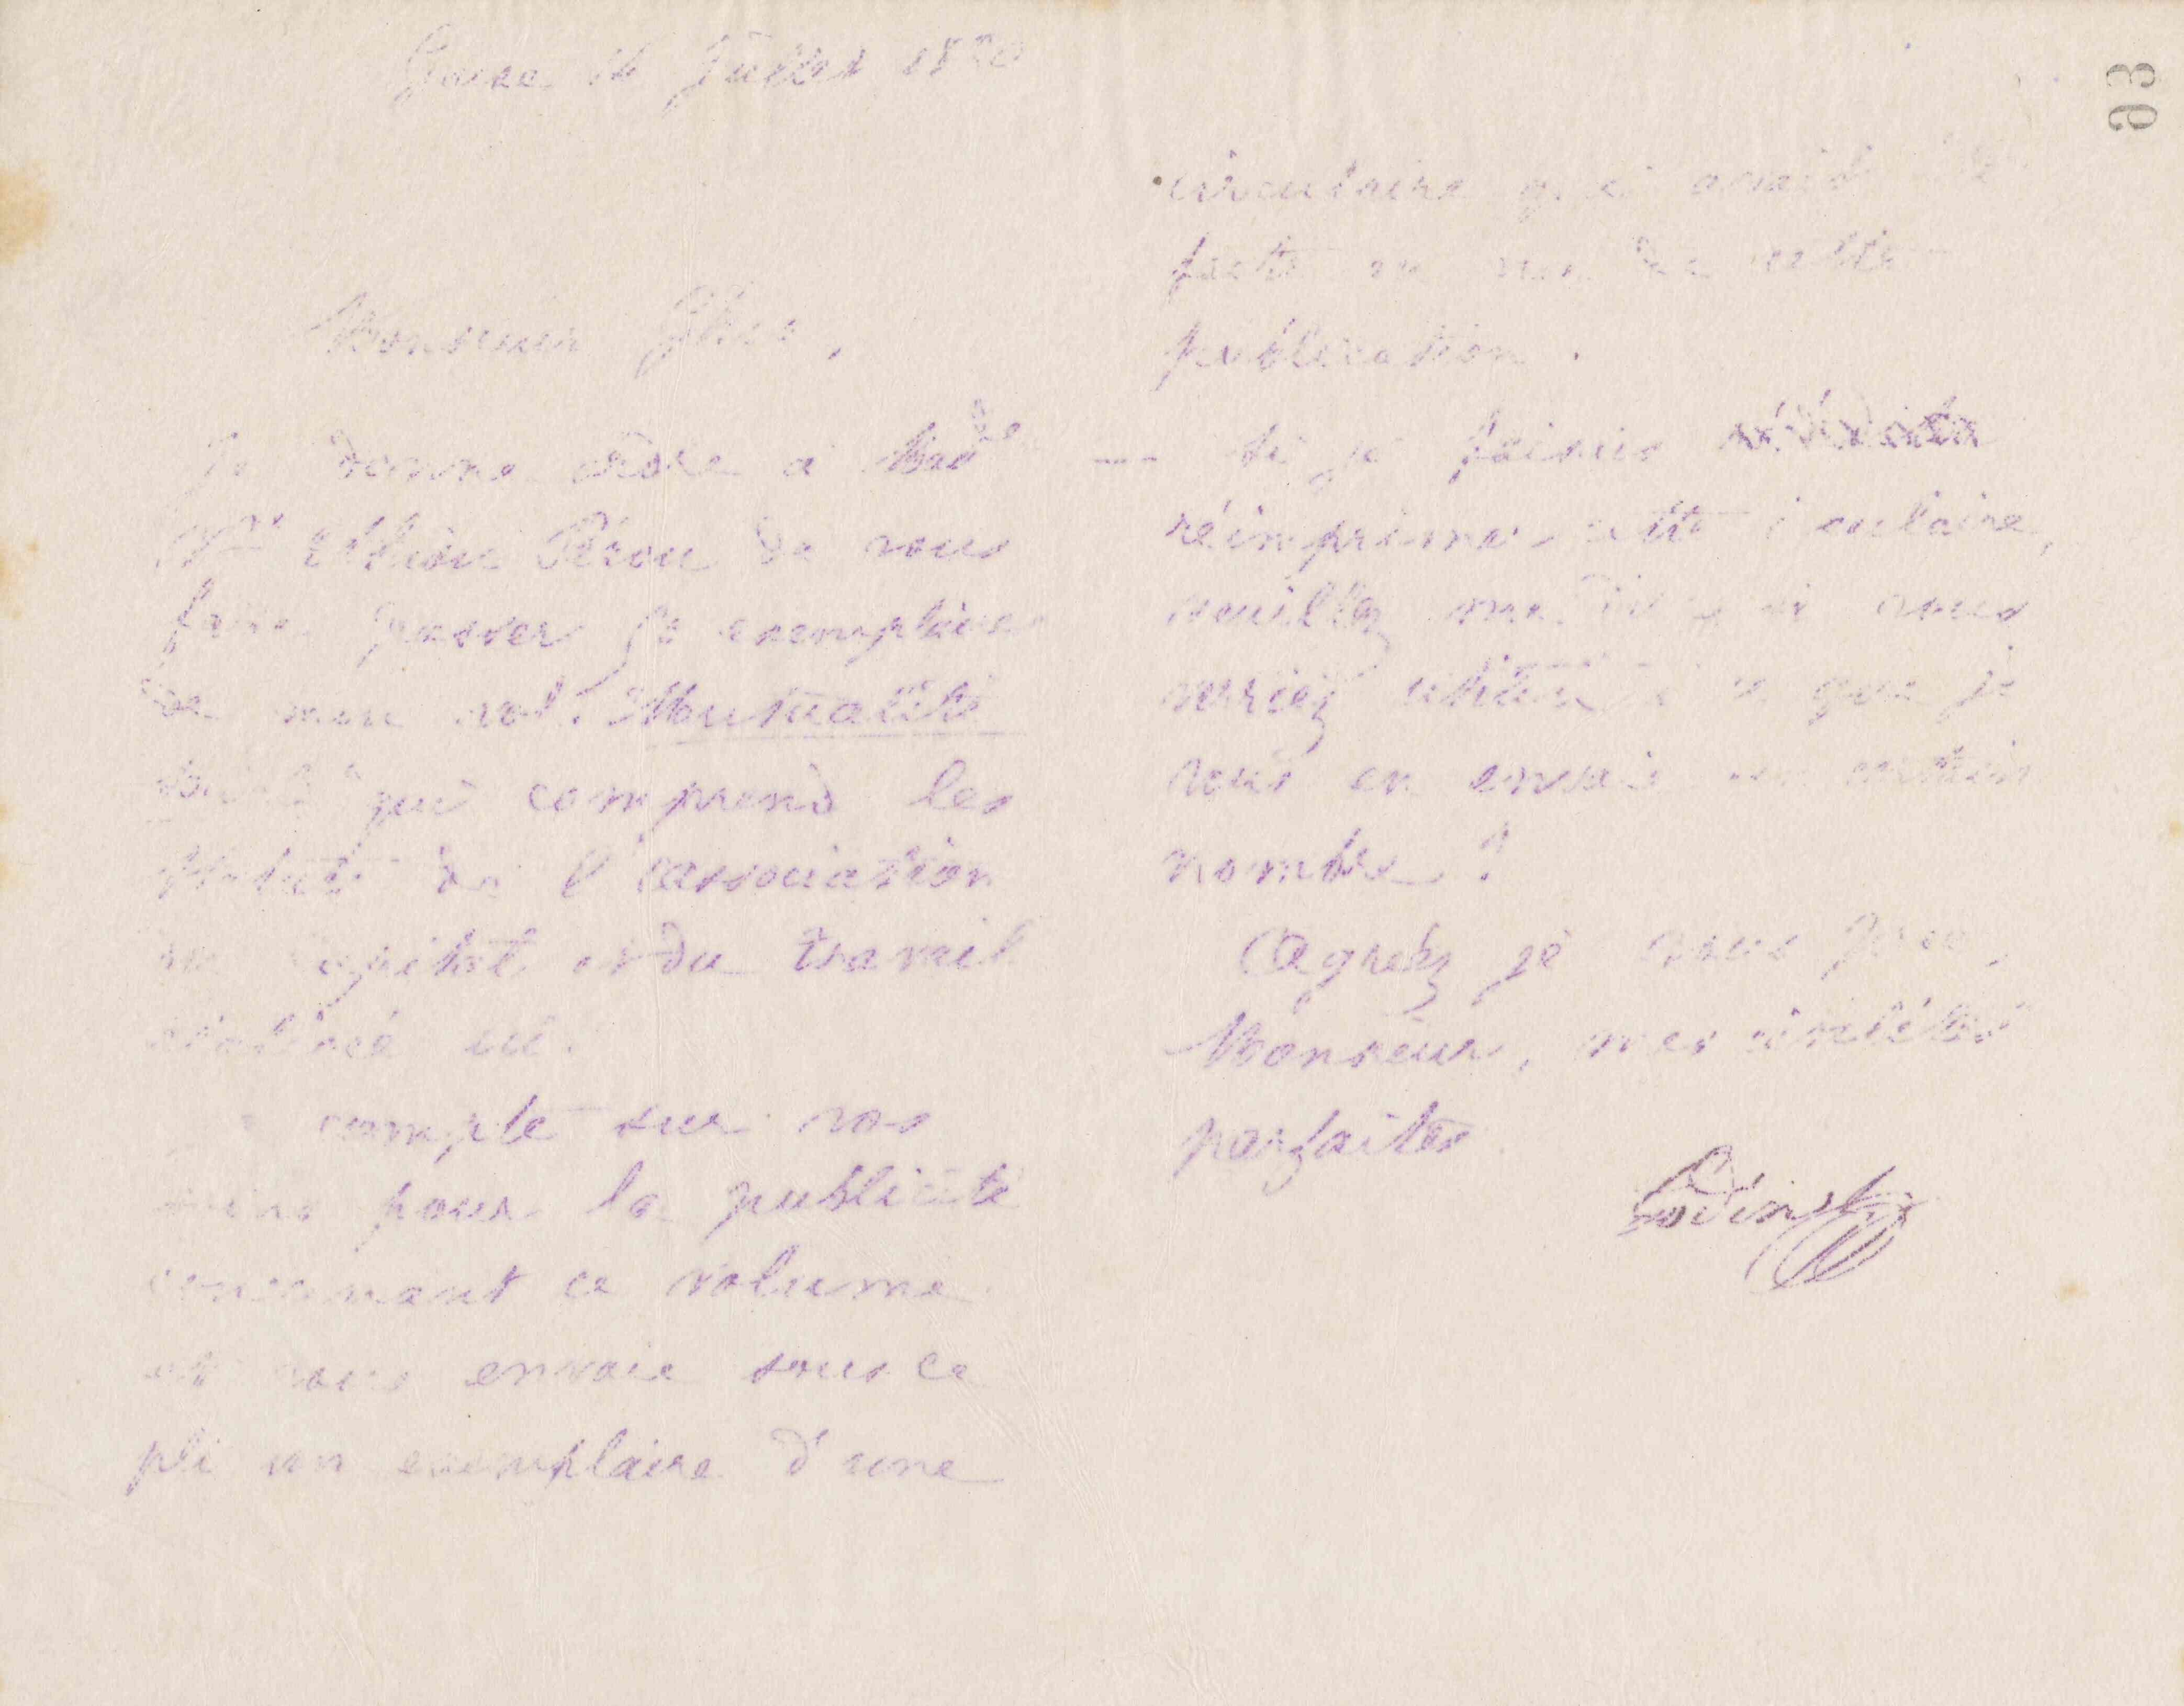 Guise 16 Juillet 1880
Monsieur Ghio,
Je donne ordre à Made
Vve Ethiou Pérou de vous
faire passer 50 exemplaires
de mon vol. Mutualité
qui comprend les
Statuts de l'association
du capital et du travail
ici.
compte sur vos
soins pour la publicité
concernant ce volume
et vous envoie sous ce
pli un exemplaire d'une
93
circulaire qui avait été
faite en vue de cette
publication.
--- Si je faisais
réimprimer cette circulaire,
veuillez me dire si vous
verriez utilité à ce que je
vous en envoie un certain
nombre ?
Agréez je vous prie,
Monsieur, mes civilités
parfaites.
Godin